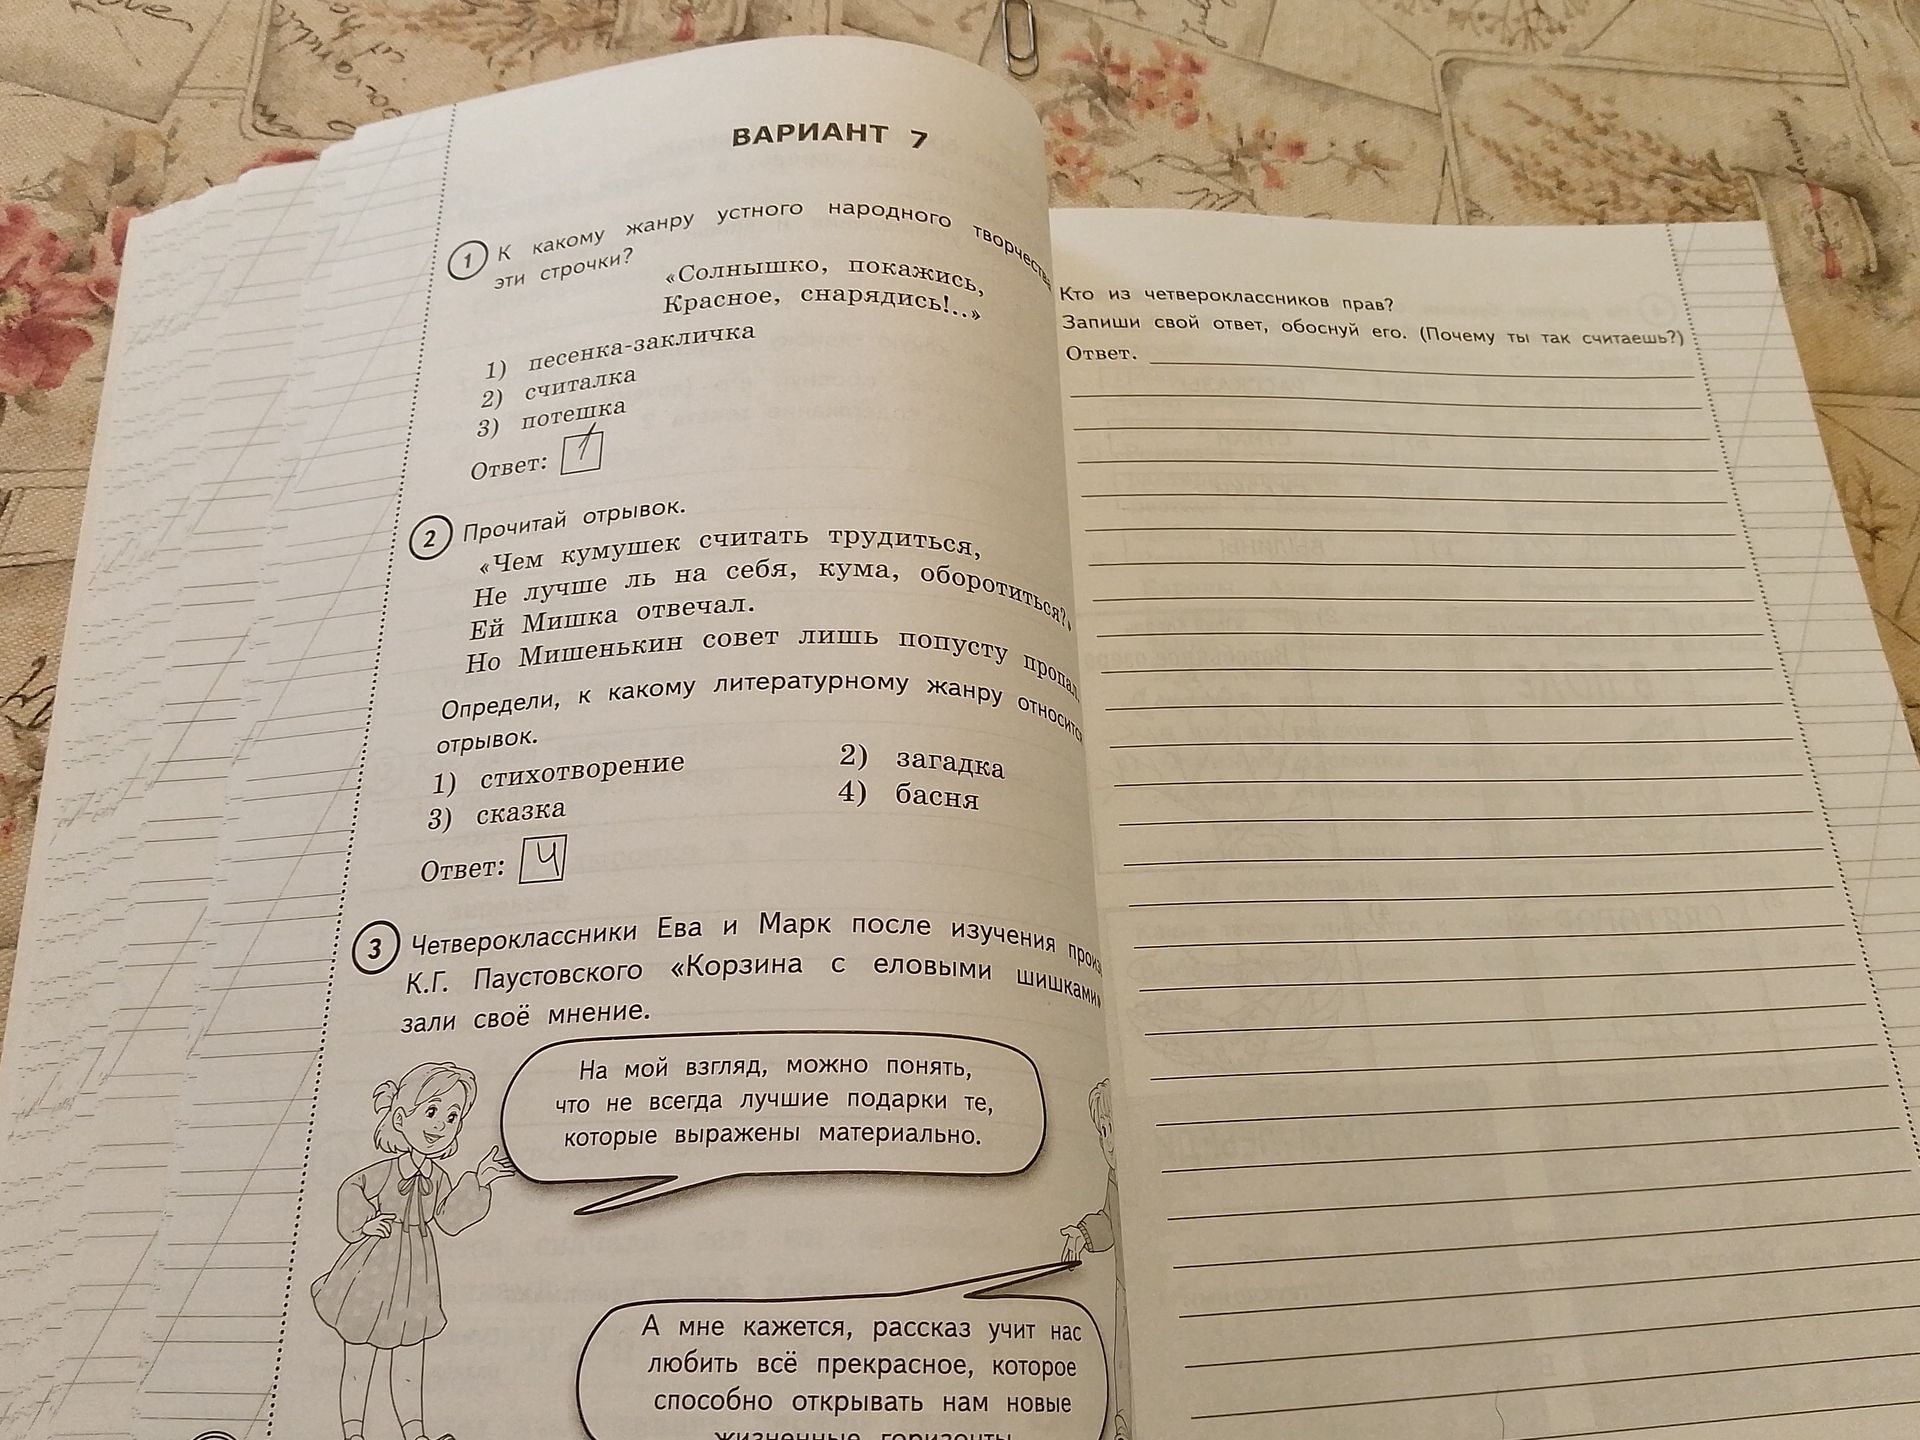 ВАРИАНТ 7
1 К какому жанру устного народного творчества
эти строчки?
«Солнышко, покажись,
Красное, снарядись!..»
1) песенка-закличка
2) считалка
3) потешка
Ответ: 1
2 Прочитай отрывок.
«Чем кумушек считать трудиться,
Не лучше ль на себя, кума, оборотиться?»
Ей Мишка отвечал.
Но Мишенькин совет лишь попусту пропал.
Определи, к какому литературному жанру относится
отрывок.
1) стихотворение 2) загадка
3) сказка 4) басня
Ответ: 4
3 Четвероклассники Ева и Марк после изучения произ
К.Г. Паустовского «Корзина с еловыми шишками»
зали своё мнение.
На мой взгляд, можно понять,
что не всегда лучшие подарки те,
которые выражены материально.
А мне кажется, рассказ учит нас
любить всё прекрасное, которое
способно открывать нам новые
жизненные горизонты.
Кто из четвероклассников прав?
Запиши свой ответ, обоснуй его. (Почему ты так считаешь?)
Ответ.